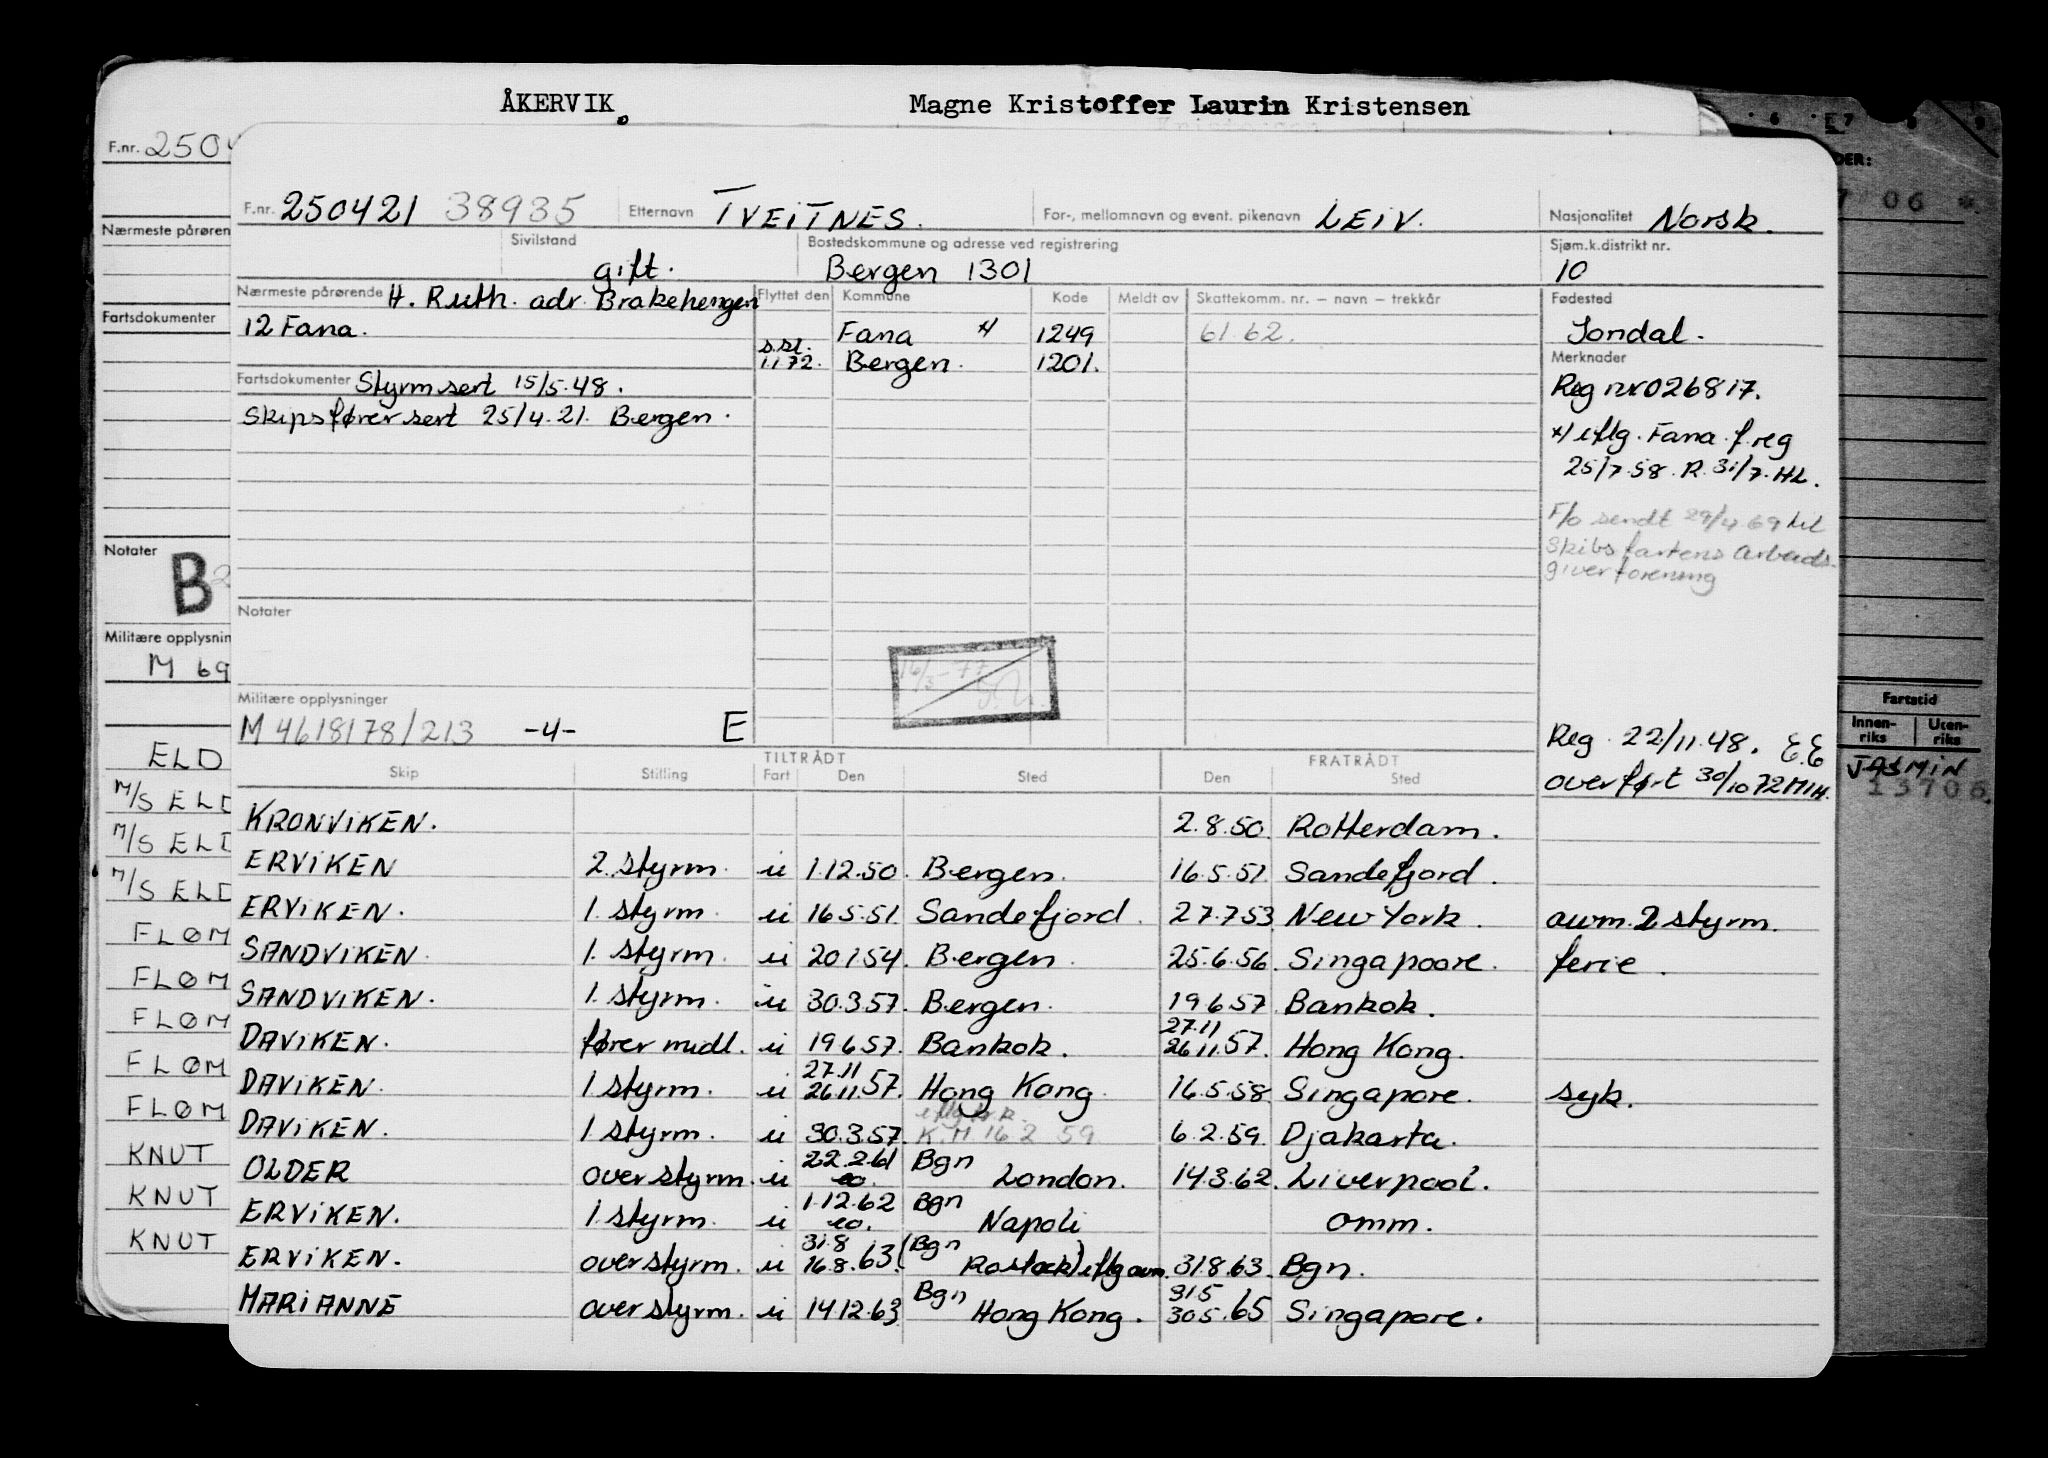 ÅKERVIK. Magne Kristoffer Laurin Kristensen
F.nr. 250421 38935 Etternavn TVEITNES. For-, mellomnavn og event. pikenavn LEIV. Nasjonalitet Norsk.
Sivilstand gift. Bostedskommune og adresse ved registrering Bergen 1301 Sjøm.k.distrikt nr. 10
Nærmeste pårørende H. Ruth. adr. Brakehengen
12 Fana.
Flyttet den Kommune Kode Meldt av Skattekomm. nr. – navn – trekkår
Fana x) 1249 61.62.
s.sl.
1.1.72. Bergen. 1201.
Fødested
Jondal.
Fartsdokumenter Styrm sert 15/5.48.
Skipsfører sert 25/4.21. Bergen.
Merknader
Reg nr 026817.
x) iflg. Fana f.reg
25/7.58. R. 31/7. HL.
F/o sendt 29/4.69 til
Skibsfartens Arbeids-
giverforening
Notater
16/3-77
Militære opplysninger
M 4618178/213 -4- E
Reg. 22/11.48. E.E
overført 30/10 72 MIH.
TILTRÅDT FRATRÅDT
Skip Stilling Fart Den Sted Den Sted
KRONVIKEN. 2.8.50. Rotterdam.
ERVIKEN 2. styrm. u 1.12.50. Bergen. 16.5.51. Sandefjord.
ERVIKEN. 1. styrm. u 16.5.51. Sandefjord. 27.7.53. New York. avm. 2 styrm.
SANDVIKEN. 1. styrm. u 20.1.54. Bergen. 25.6.56. Singapoore. ferie.
SANDVIKEN. 1. styrm. u 30.3.57. Bergen. 19.6.57 Bankok.
DAVIKEN. fører midl. u 19.6.57. Bankok. 27.11 26.11.57. Hong Kong.
DAVIKEN. 1. styrm. u 27.11 26.11.57. Hong Kong. 16.5.58. Singapore. syk.
DAVIKEN. 1 styrm. u 30.3.57. K.M 16 2 59 6.2.59. Djakarta.
OLDER overstyrm. u 22.2.61 ca. Bgn London. 14.3.62. Liverpool.
ERVIKEN. 1. styrm. u 1.12.62 ca. Bgn Napoli omm.
ERVIKEN. overstyrm. u 31.8 16.8.63. (Bgn Rostock) iflg avm. 31.8.63. Bgn.
MARIANNE overstyrm. u 14.12.63. Bgn Hong Kong. 31.5 30.5.65 Singapore.
F.nr. 250
Nærmeste pårøren
Fartsdokumenter
Notater
B
Militære opplysnin
M 69
ELD
M/S ELD
M/S ELD
M/S ELD
FLØM
FLØM
FLØM
FLØM
FLØM
KNUT
KNUT
KNUT
6 7 8 9
DER:
7 06
Fartstid
Innen-
riks
Uten-
riks
JASMIN
13706.